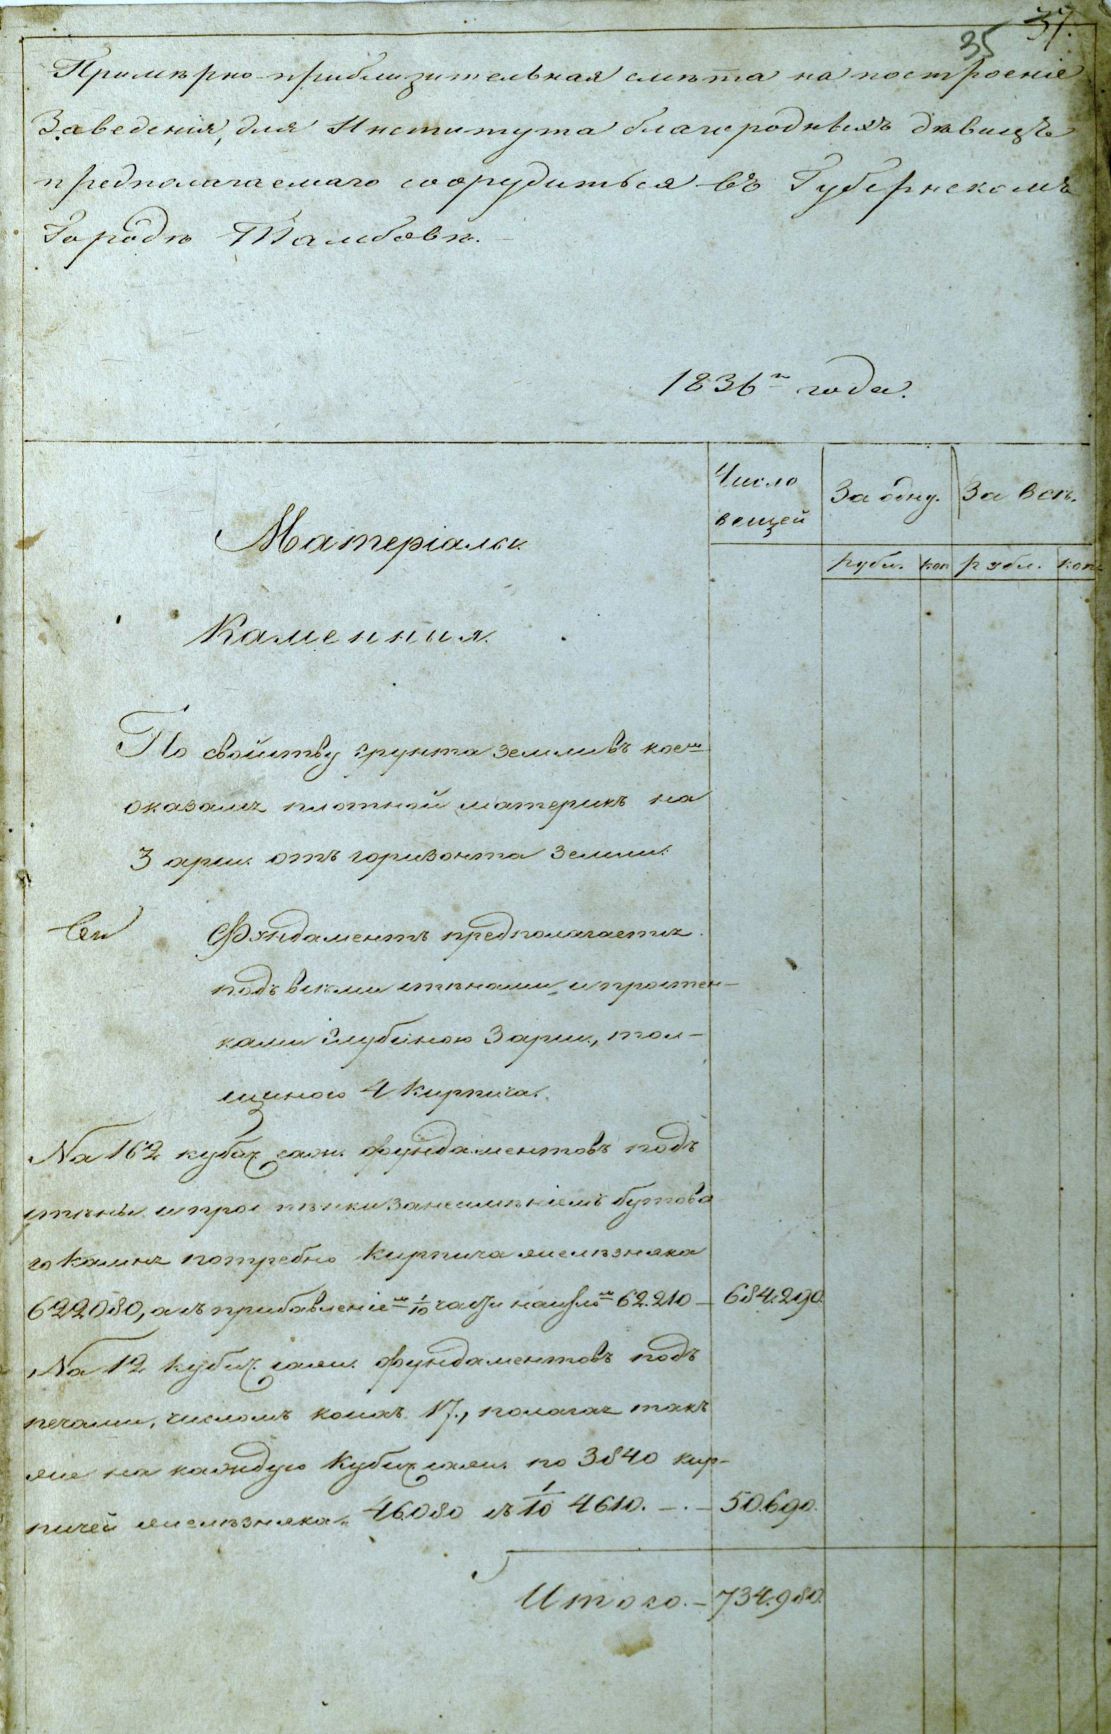 37.
35
Примѣрно-приблизительная смѣта на построенiе
Заведенiя, для Института благородныхъ дѣвицъ
предполагаемаго соорудиться въ Губернскомъ
Городѣ Тамбовѣ.
1836го года.
Число вещей
За одну.
За всѣ.
рубл. коп рубл. коп.
Матерiалы
Каменныя.
По свойству грунта земли въ коемъ
оказался плотной материкъ на
3 арш. отъ горизонта земли.
Фундаментъ предполагается
подъ всѣми стѣнами и простен-
ками глубиною 3 арш., тол-
щиною 4 кирпича.
На 162 кубич. саж. фундаментовъ подъ
стѣны и простѣнки занеимѣнiемъ бутова
го камня потребно кирпича желѣзняка
622080, а съ прибавленiемъ 1/10 части 62.210 — 684.290.
На 12 кубич. саж. фундаментовъ подъ
печами, числомъ коихъ 17., полагая такъ
же на каждую кубич. саж. по 3840 кир-
пичей желѣзняка. 46080 съ 1/10 4610. — . — 50.690.
Итого. — 734.980.